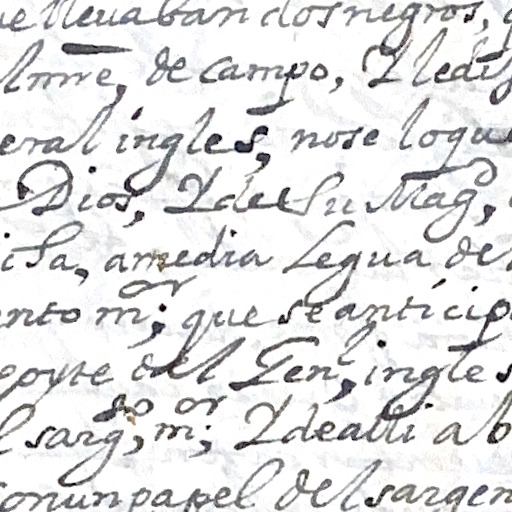 e lleuaban dos negros,
lmre, de campo, Y le dis
eral ingles, no se lo que
Dios, Y de Su Magd,
isa, a media Legua de
ento mor; que se antícip
porte del Genl, ingles
l sargto, mor; Y de alli a b
con un papel del sargen